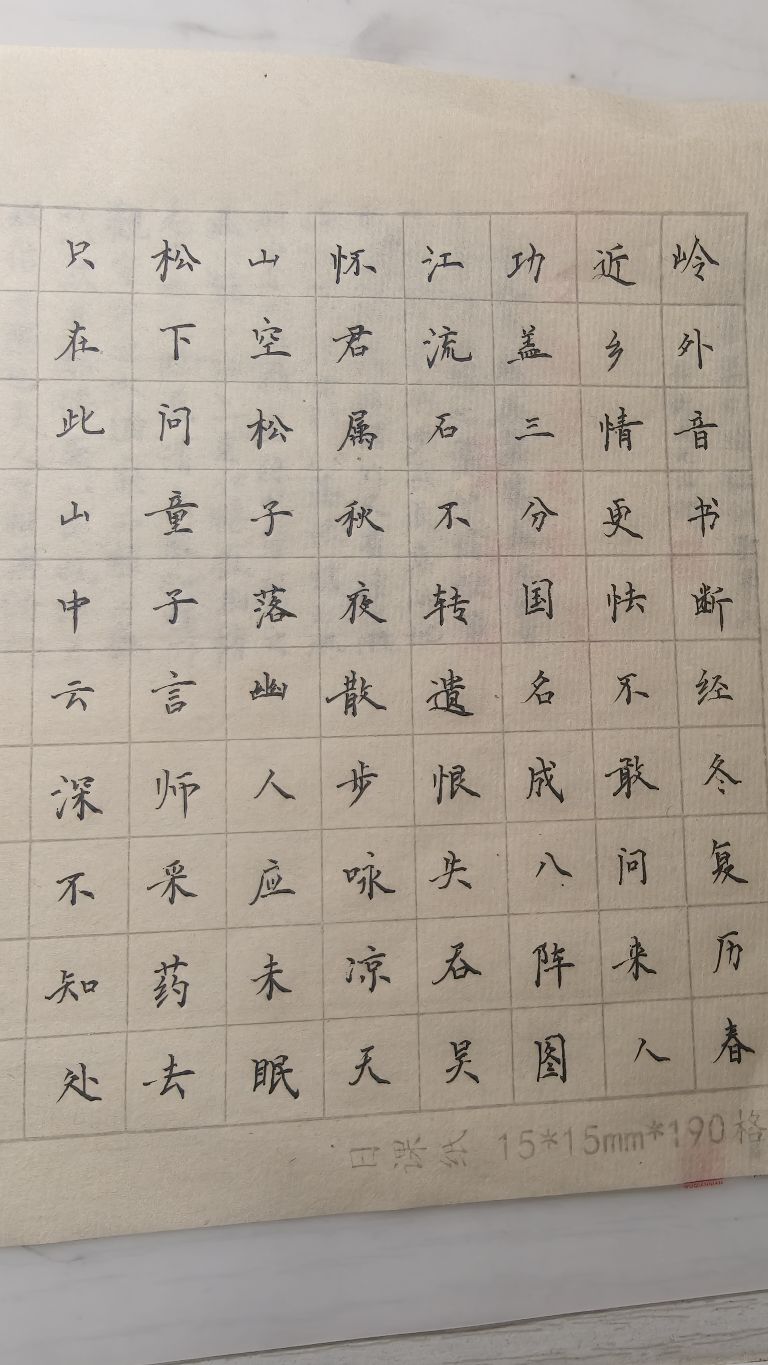 岭外音书断经冬复历春
近乡情更怯不敢问来人
功盖三分国名成八阵图
江流石不转遗恨失吞吴
怀君属秋夜散步咏凉天
山空松子落幽人应未眠
松下问童子言师采药去
只在此山中云深不知处
日课纸 15*15mm*190格